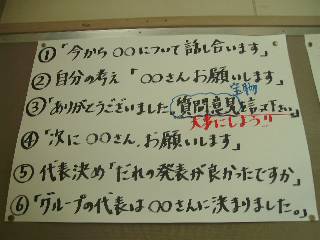 ①「今から○○について話し合います」
②自分の考え「○○さんお願いします」
宝物
③「ありがとうございました質問意見を言って下さい」
大事にしよう!!
④「次に○○さん、お願いします」
⑤代表決め「だれの発表が良かったですか」
⑥「グループの代表は○○さんに決まりました。」